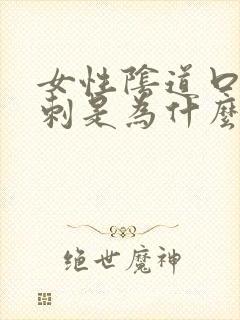 女性陰道口
刺是為什麼
绝世魔神